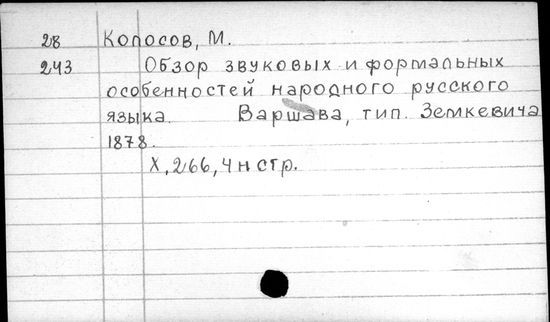 28 Колосов, М.
243 Обзор звуковых и формальных
особенностей народного русского
языка. Варшава, тип. Земкевича
1878.
X, 266, 4 н стр.